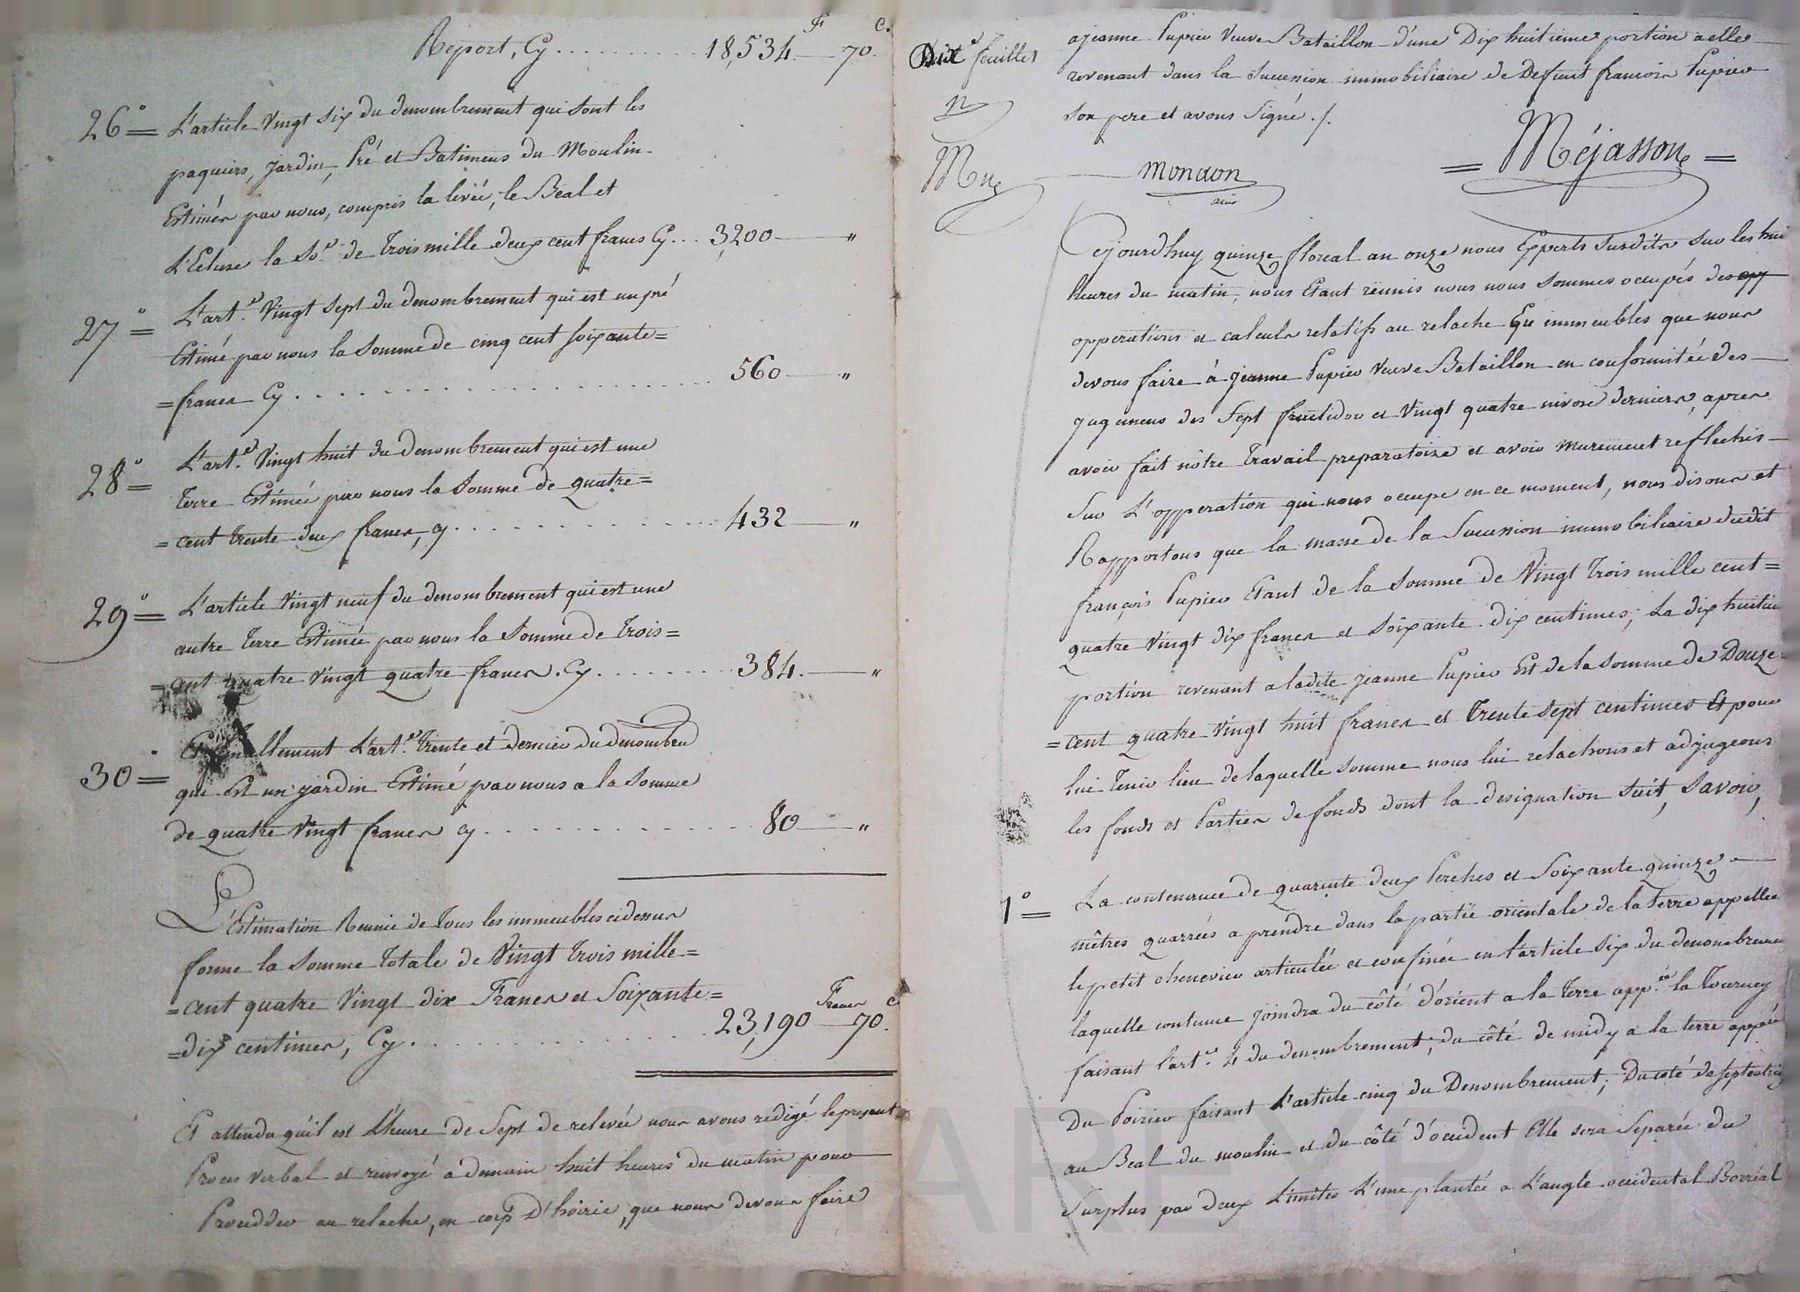 Report, Cy .......... 18,534 F 70 c.
26° = L'article Vingt six du denombrement qui sont les
paquiers, jardin, Pré et Batimens du Moulin
Estimés par nous, compris la levée, le Beal et
L'Ecluse la So.e de Trois mille deux cent francs Cy... 3,200 — "
27° = L'art.e Vingt Sept du denombrement qui est un pré
Estimé par nous la Somme de cinq cent soixante=
=francs Cy .................... 560 — "
28° = L'art.e Vingt huit du denombrement qui est une
Terre Estimée par nous la Somme de quatre=
=cent trente deux francs, cy .............. 432 — "
29° = L'article Vingt neuf du denombrement qui est une
autre Terre Estimée par nous la Somme de Trois=
=cent quatre Vingt quatre francs. Cy ......... 384. — "
30° = Et finallement L'art.e Trente et dernier du denombre
qui Est un jardin Estimé par nous a la Somme
de quatre Vingt francs cy .............. 80 — "
L'Estimation Reunie de Tous les immeubles cidessus
forme la Somme Totale de Vingt Trois mille=
=cent quatre Vingt dix Francs et Soixante=
=dix centimes, Cy .............. 23,190 Francs 70 c.
Et attendu qu'il est L'heure de Sept de relevée nous avons redigé le present
Procès verbal et renvoyé a demain huit heures du matin pour
Proceddér au relache, en corp D'hoirie, que nous devons faire
Dix.e feuillet
a jeanne Pupier Veuve Bataillon d'une Dix huitieme portion a elle
revenant dans la Succession immobiliaire de Defunt francois Pupier
Son pere et avons Signé ./.
Mondon
= Méjasson =
Cejourdhuy quinze floreal an onze nous Experts Susdits Sur les huit
heures du matin, nous Etant reunis nous nous Sommes occupés des opp
opperations et calculs relatifs au relache En immeubles que nous
devons faire à jeanne Pupier Veuve Bataillon en conformitée des
jugemens des Sept fructidor et Vingt quatre nivose derniers, apres
avoir fait nôtre Travail preparatoire et avoir murement reflechis
Sur L'opperation qui nous occupe en ce moment, nous disons et
Rapportons que la masse de la Succession immobiliaire dudit
françois Pupier Etant de la Somme de Vingt Trois mille cent=
quatre Vingt dix francs et Soixante dix centimes; La dix huitieme
portion revenant a ladite jeanne Pupier Est de la Somme de Douze
=cent quatre Vingt huit francs et Trente Sept centimes Et pour
lui Tenir lieu de laquelle Somme nous lui relachons et adjugeons
les fonds et Parties de fonds dont la designation Suit, Savoir,
1° = La contenance de quarente deux Perches et Soixante quinze
mêtres quarrés a prendre dans la partie orientale de la Terre appellée
le petit chenevier articulée et confinée en l'article Six du denombrement
laquelle contenue joindra du côté d'orient a la Terre app.ée la Tourney
faisant l'art.e 4 du denombrement; du côté de midy a la terre appée
Du Poirier faisant L'article cinq du Denombrement; Du coté de Septentrion
au Beal du moulin et du côté d'occident Elle sera Separée du
Surplus par deux Limites L'une plantée a L'angle occidental Boréal
CHAREYRON